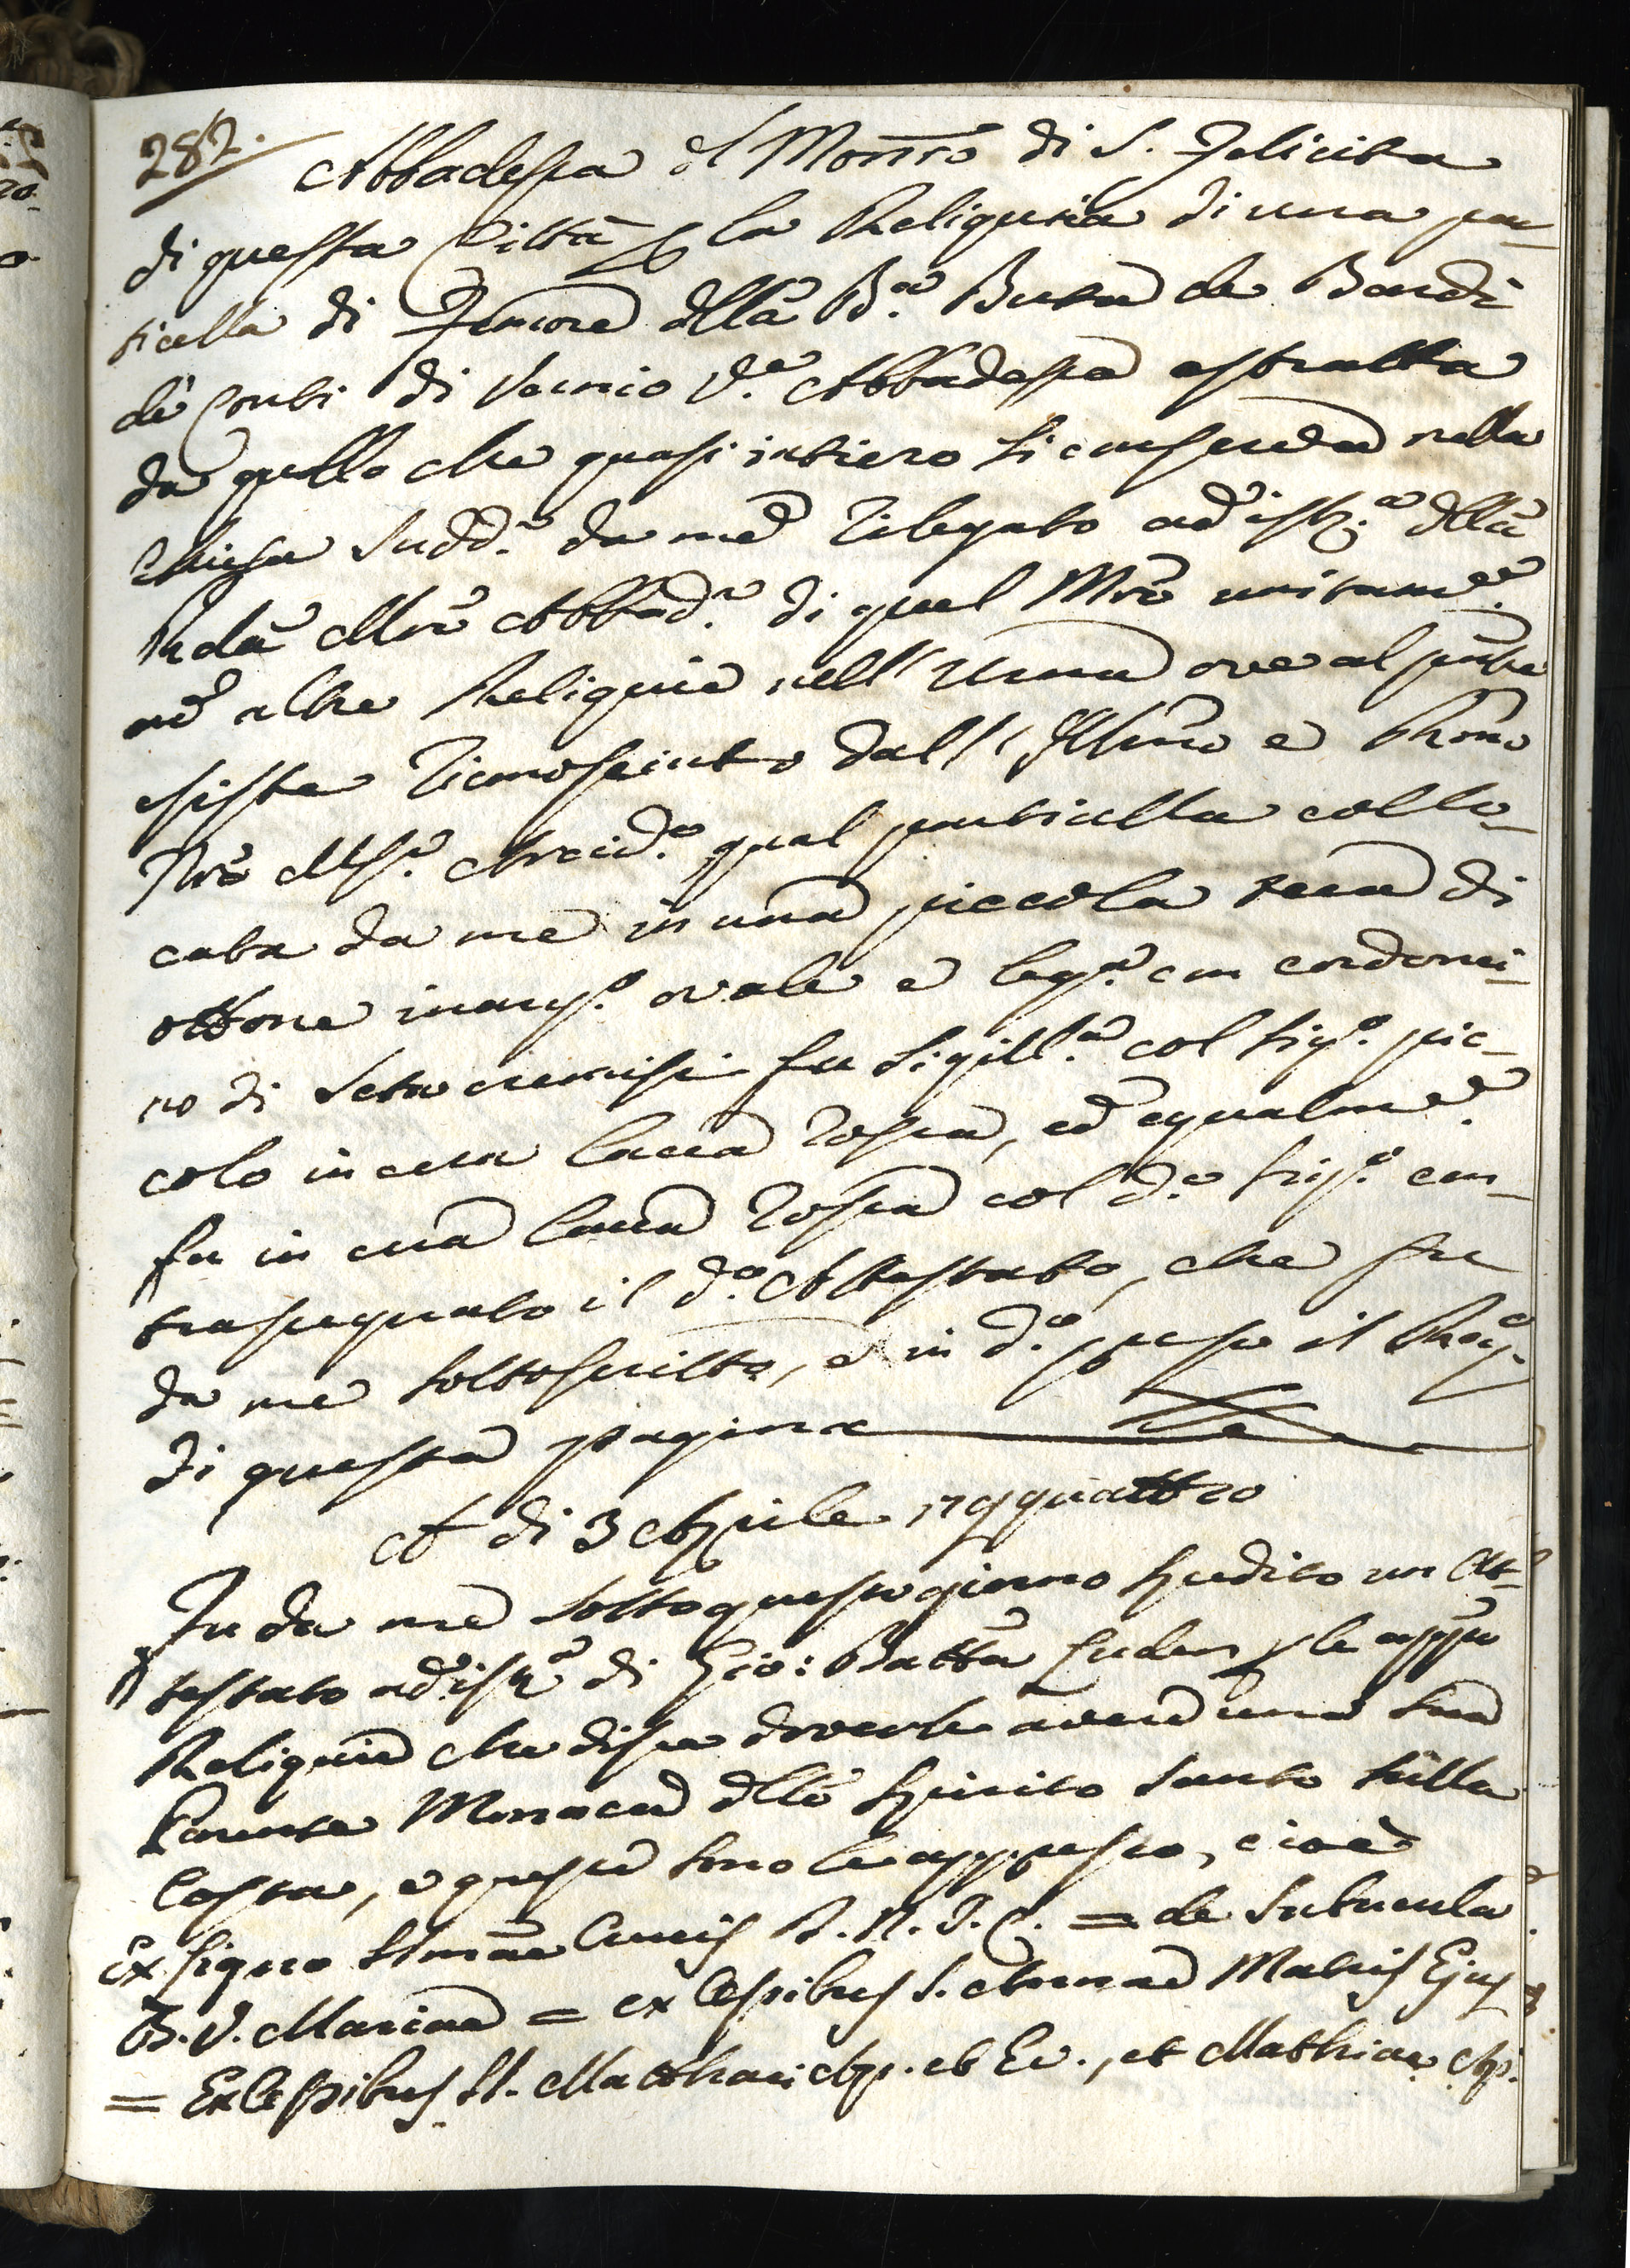 282.
Abbadessa d Monro di S. Felicita
di questa Città p la Reliquia di una par-
ticella di Femore dlla B.a Berta de Bardi
de' Conti di Vernio V.e Abbadessa estratta
da quello che quasi intiero si conserva nella
Chiesa Sudd.a da me rilegato ad istz.a dlla
Rda Mre Abbad.a di quel Mro unitame.e
ad altre Reliquie nell'Urna ove al pnte
esiste riconosciuto dall'Illmo e Rmo
Nro Msr. Arcid.o qual particella collo-
cata da me in una piccola teca di
ottone inarg.o ovale e leg.a con cordonci-
no di Seta cremisi fu Sigill.a col Sig.o pic-
colo in cera lacca rossa, ed egualme.e
fu in cera lacca rossa col d.o Sig.o con-
trasegnato il d.o Attestato, che fu
da me sottoscritto, e in d.o preso il Reg.o
di questa pagina
A di 3 Aprile 179quattro
Fu da me sotto questo giorno spedito un At-
testato ad istz.a di Gio: Batta p le appo
Reliquie che disse doverle avere una sua
Parente Monaca dllo Spirito Santo sulla
Costa, e queste sono le appresso, cioè
Ex Ligno Ssmae Crucis D. N. J. C. = de Subucula
B. V. Mariae = ex Ossibus S. Annae Matris Ejus
= Ex Ossibus SS. Matthaei Ap. et Ev., et Mathiae Ap.